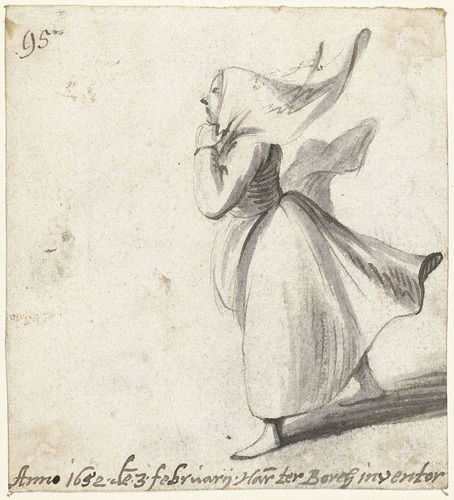 95
Anno 1652 de 3 februarij Har ter Borch inventor